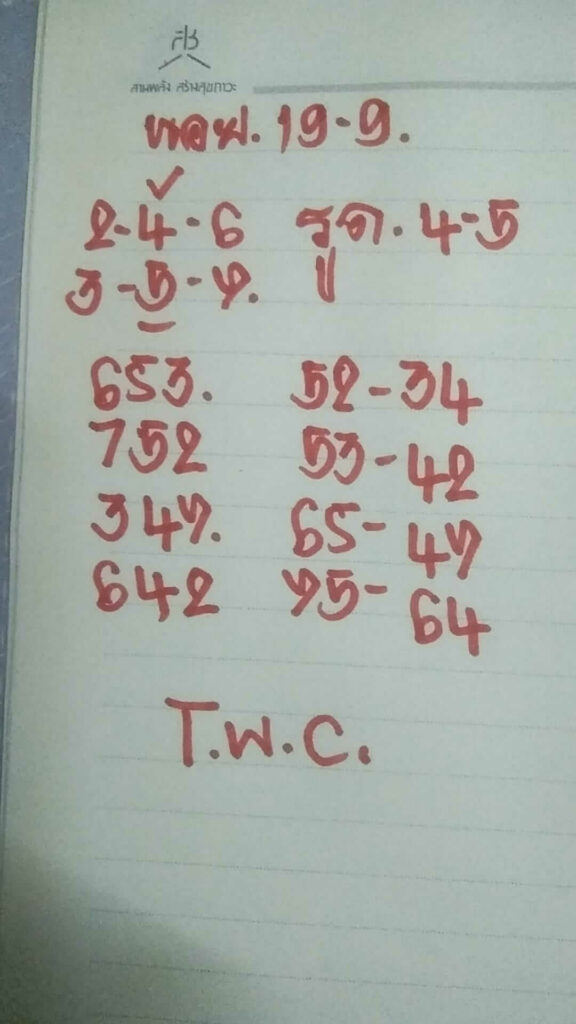 สช
สานพลัง สร้างสุขภาวะ
หอย. 19-9.
2-4-6 รูด. 4-5
3-5-7.
653. 52-34
752 53-42
347. 65-47
642 75-64
T.W.C.